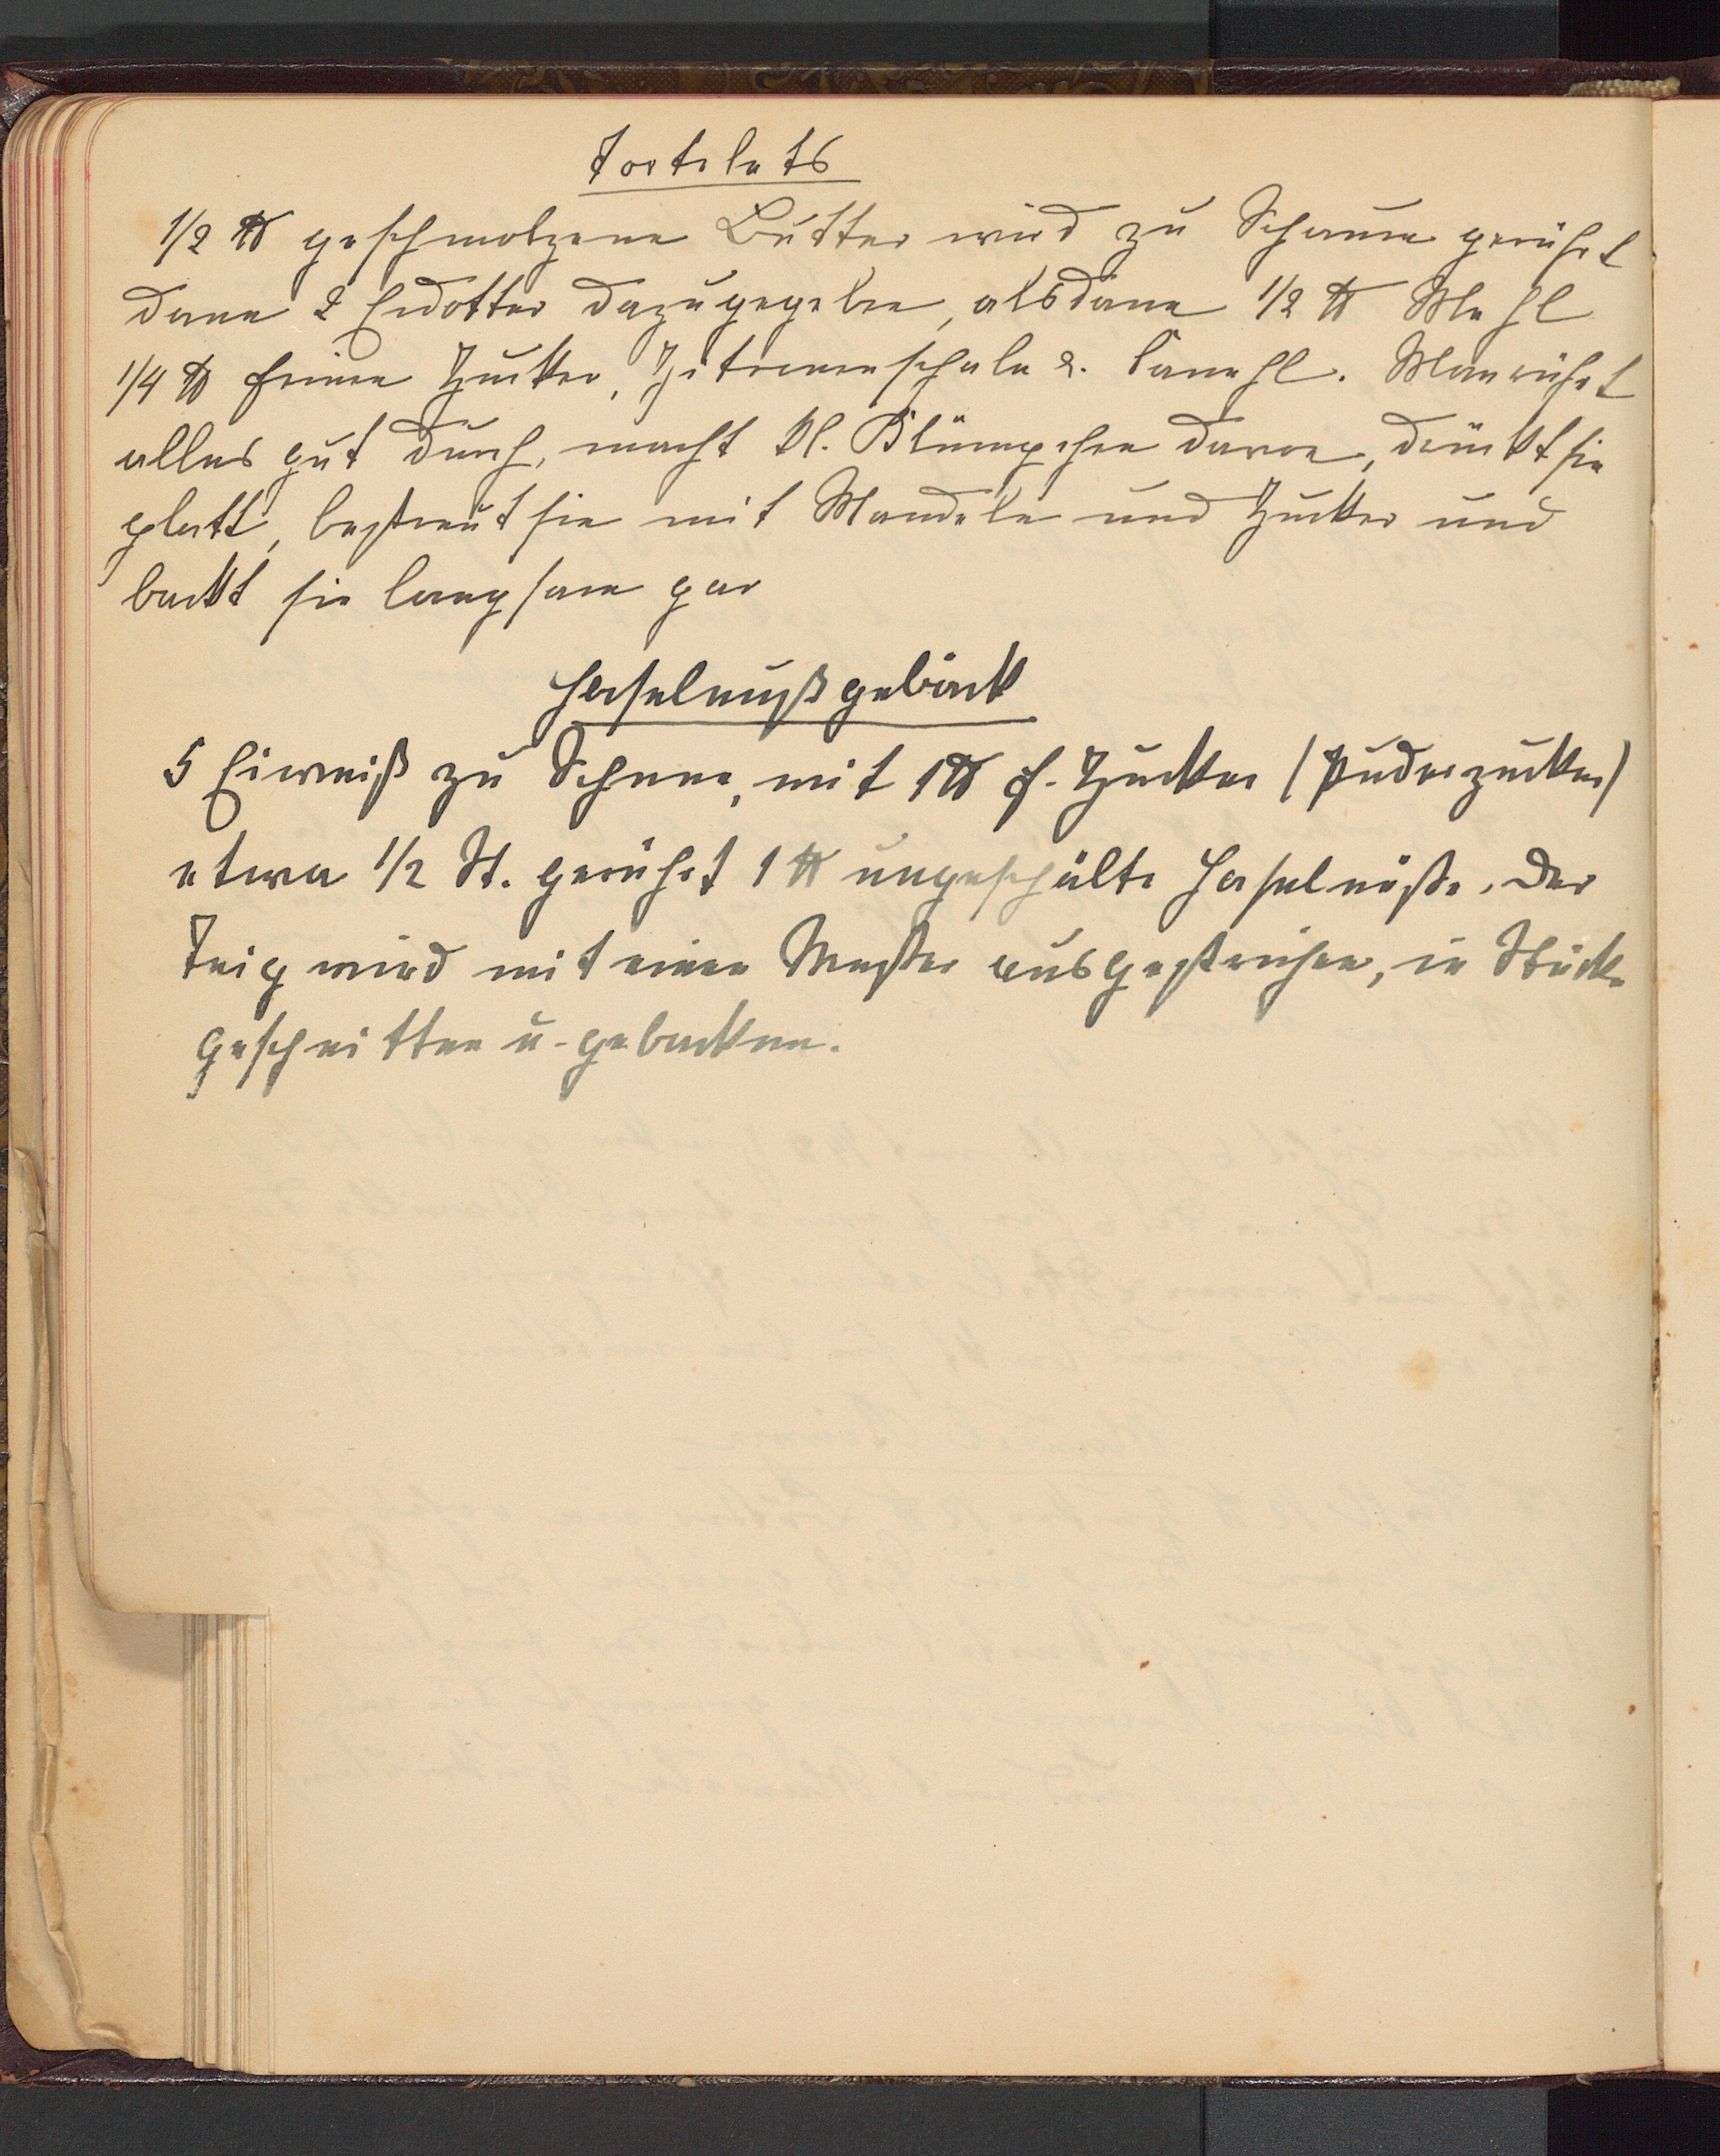 Tortelets
1/2 ℔ geschmolzene Butter wird zu Schaum gerührt
dann 2 Eidotter dazugegeben, alsdann 1/2 ℔ Mehl
1/4 ℔ feinen Zucker, Zitronenschale u. Canehl. Man rührt
alles gut durch, macht kl. Klümpchen davon, drückt sie
platt, bestreut sie mit Mandeln und Zucker und
backt sie langsam gar
Haselnußgebäck
5 Eiweiß zu Schnee, mit 1 ℔ f. Zucker (Puderzucker)
etwa 1/2 St. gerührt 1 ℔ ungeschälte Haselnüße. Der
Teig wird mit einem Messer ausgestrichen, in Stücke
geschnitten u. gebacken.